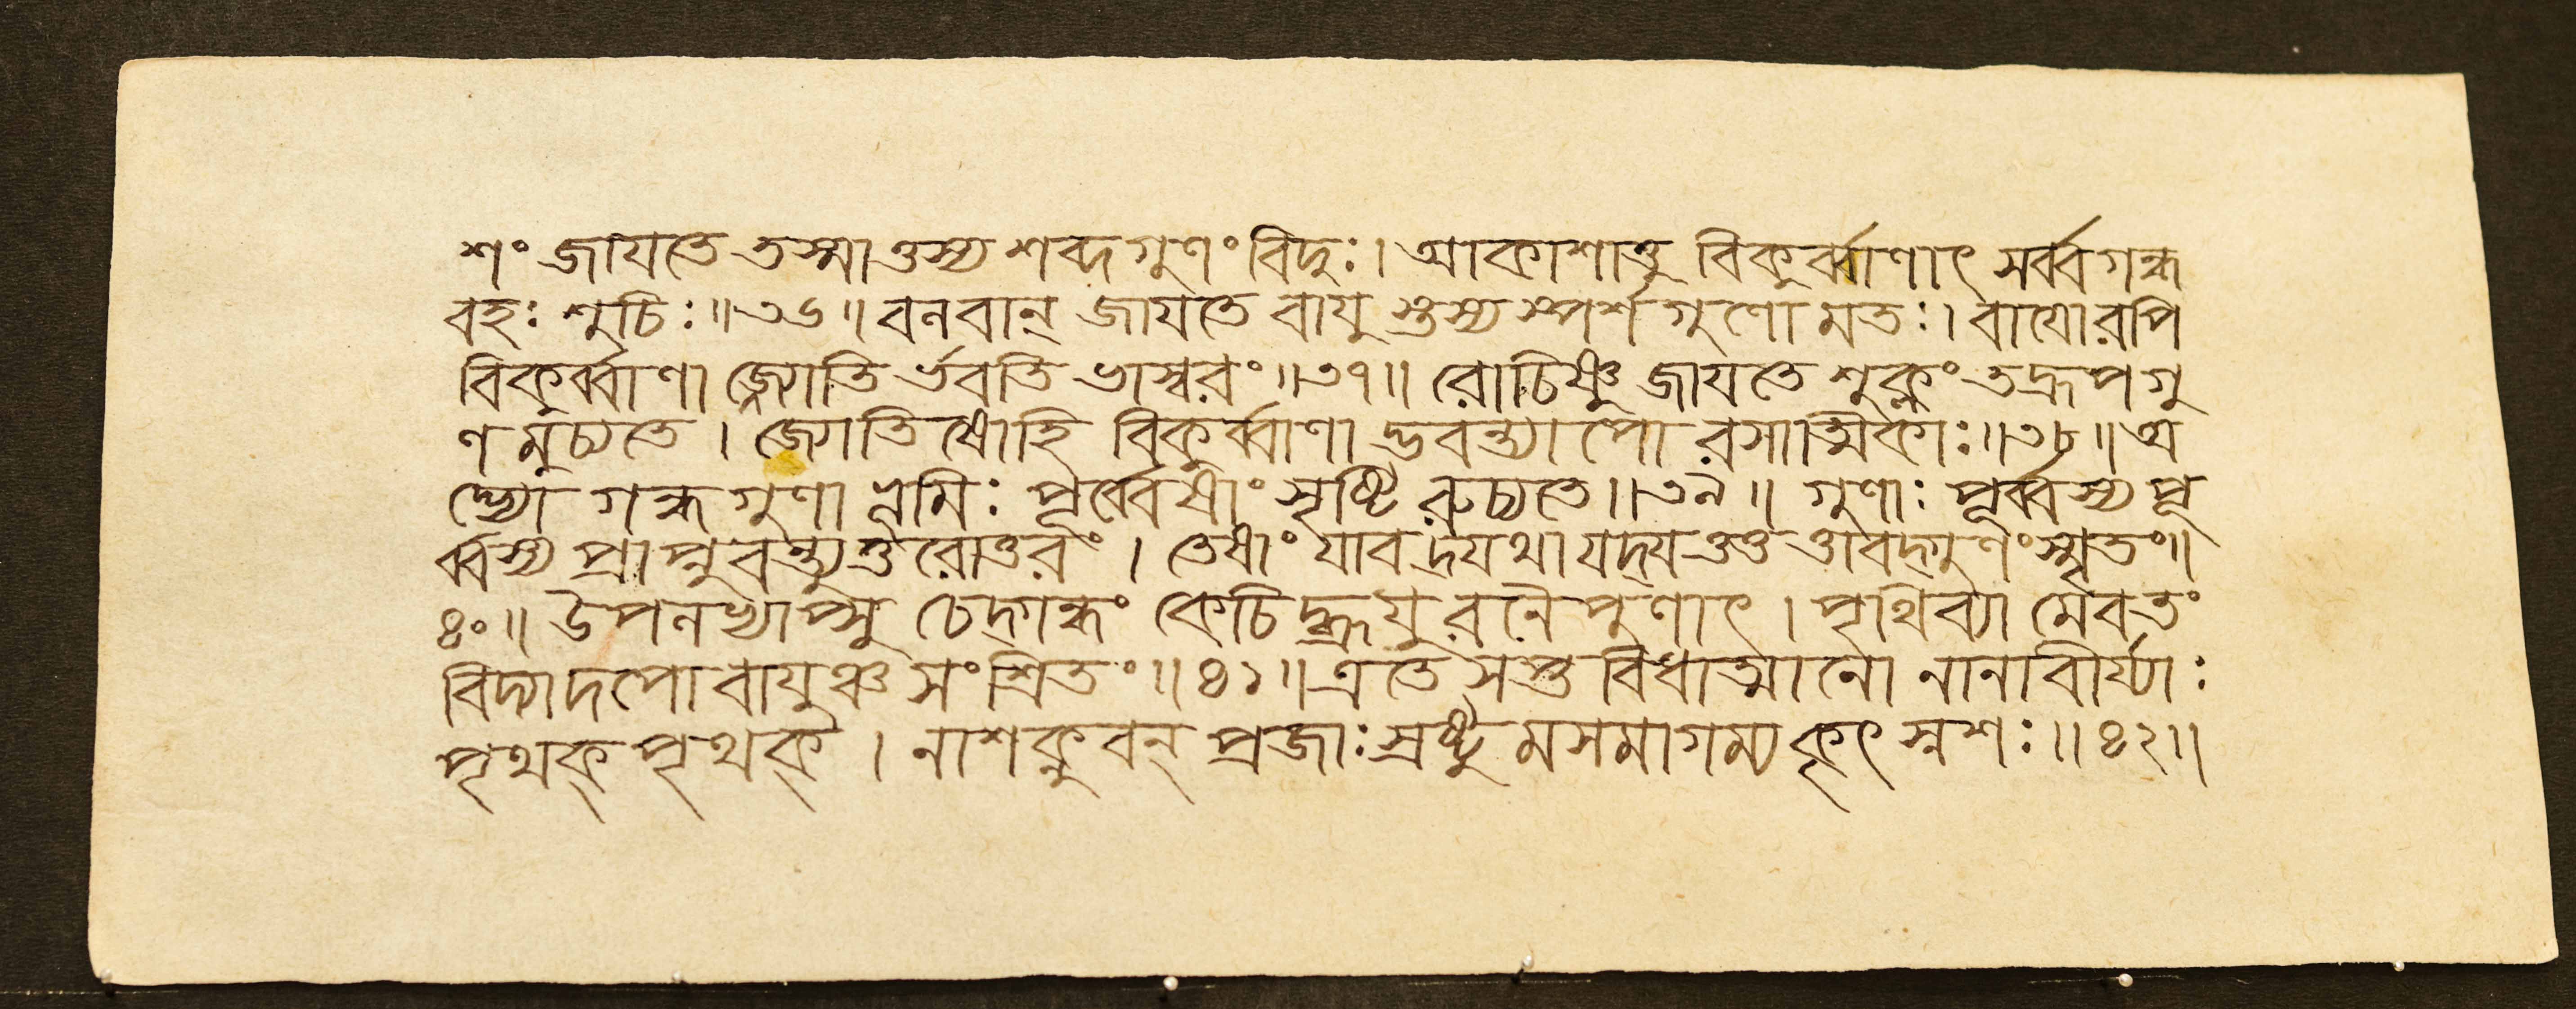 শং জাযতে তস্মাত্তস্য শব্দগুণং বিদুঃ। আকাশাত্তু বিকুর্ব্বাণাৎ সর্ব্বগন্ধ
বহঃ শুচিঃ॥৩৬॥ বলবান্ জাযতে বাযুস্তস্য স্পর্শগুণো মতঃ। বাযোরপি
বিকুর্ব্বাণা জ্জ্যোতি র্ভবতি ভাস্বরং॥৩৭॥ রোচিষ্ণু জাযতে শুক্লং তদ্রূপগু
ণমুচ্যতে। জ্যোতিষোহি বিকুর্ব্বাণা দ্ভবন্ত্যাপো রসাত্মিকাঃ॥৩৮॥ অ
দ্ভ্যো গন্ধগুণা ভূমিঃ পূর্ব্বেষাং সৃষ্টিরুচ্যতে॥৩৯॥ গুণাঃ পূর্ব্বস্য পূ
র্ব্বস্য প্রাপ্নুবন্ত্যুত্তরোত্তরং। তেষাং যাবদ্রযথা যদ্যত্তত্ত তাবদ্গুণং স্মৃতং॥
৪০॥ উপলভ্যাপ্সু চেদ্গন্ধং কেচিদ্ব্রূযুরনৈপুণাৎ। পৃথিব্যা মেব তং
বিদ্যাদপো বাযুঞ্চ সংশ্রিতং॥৪১॥ এতে সপ্তবিধাত্মানো নানাবীর্য্যাঃ
পৃথক্ পৃথক্। নাশক্নুবন্ প্রজাঃ স্রষ্টু মসমাগম্য কৃৎস্নশঃ॥৪২॥